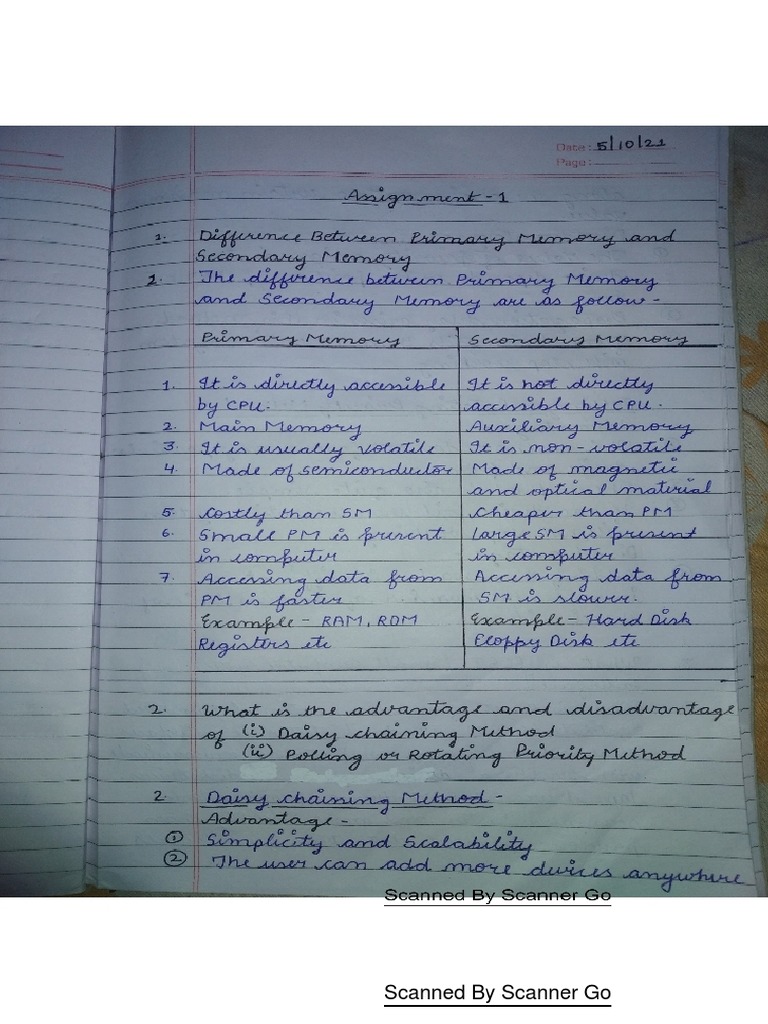 Date: 5/10/21
Page:
Assignment - 1
1. Difference Between Primary Memory and
Secondary Memory
1. The difference between Primary Memory
and Secondary Memory are as follow -
Primary Memory Secondary Memory
1. It is directly accessible It is not directly
by CPU. accessible by CPU.
2. Main Memory Auxiliary Memory
3. It is usually volatile It is non-volatile
4. Made of semiconductor Made of magnetic
and optical material
5. Costly than SM Cheaper than PM
6. Small PM is present Large SM is present
in computer in computer
7. Accessing data from Accessing data from
PM is faster SM is slower.
Example - RAM, ROM Example - Hard Disk
Registers etc Floppy Disk etc
2. What is the advantage and disadvantage
of (i) Daisy chaining Method
(ii) Polling or Rotating Priority Method
2. Daisy chaining Method -
Advantage -
① Simplicity and Scalability
② The user can add more devices anywhere
Scanned By Scanner Go
Scanned By Scanner Go